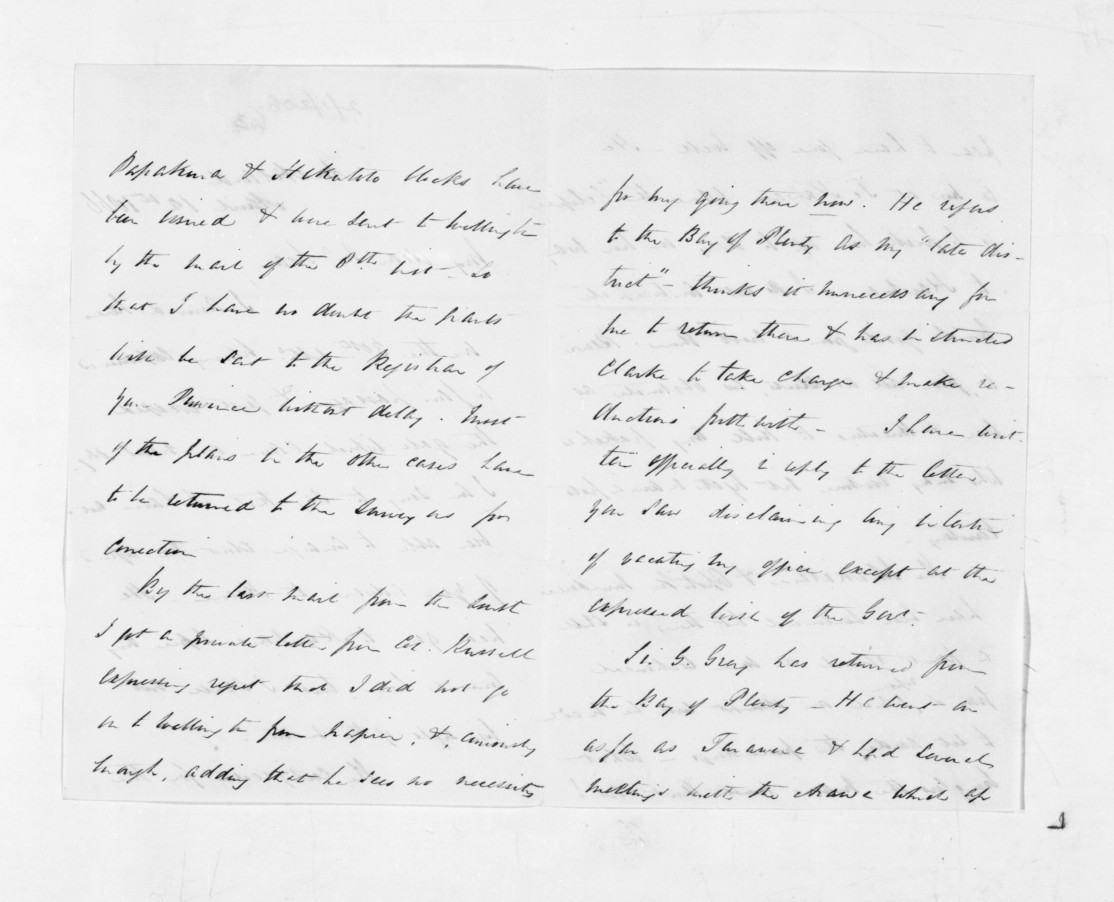 Papakura & Hikutoto blocks have
been issued & were sent to Wellington
by the mail of the 8th. Inst - so
that I have no doubt the grants
will be sent to the Registrar of
your Province without delay. Most
of the plans in the other cases have
to be returned to the Surveyors for
correction
By the last mail from the South
I got a private letter from Col. Russell
expressing regret that I did not go
on to Wellington from Napier, &, curiously
enough, adding that he sees no necessity
for my going there now. He refers
to the Bay of Plenty as my "late dis-
trict" - thinks it unnecessary for
me to return there & has instructed
Clarke to take charge & make re-
ductions forthwith - I have writ-
ten officially in reply to the letter
you saw disclaiming any intention
of vacating my office except at the
expressed wish of the Govt.
Sir G. Grey has returned from
the Bay of Plenty - He went on
as far as Tarawera & had several
meetings with the Arawa which ap